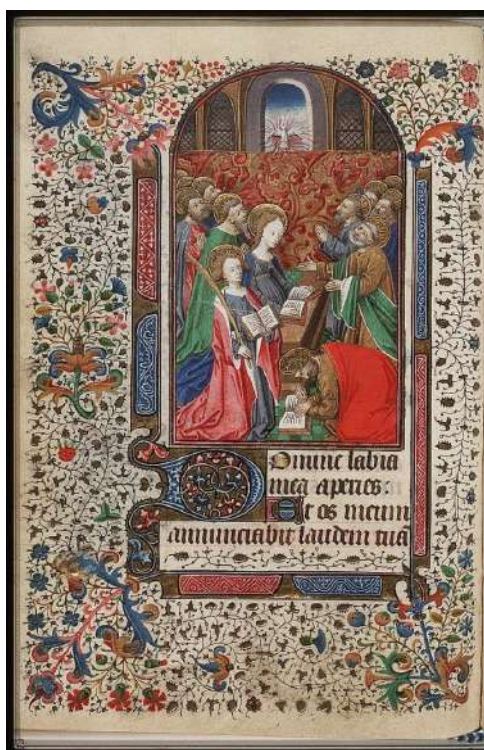 Domine labia
mea aperies.
Et os meum
annunciabit laudem tuã